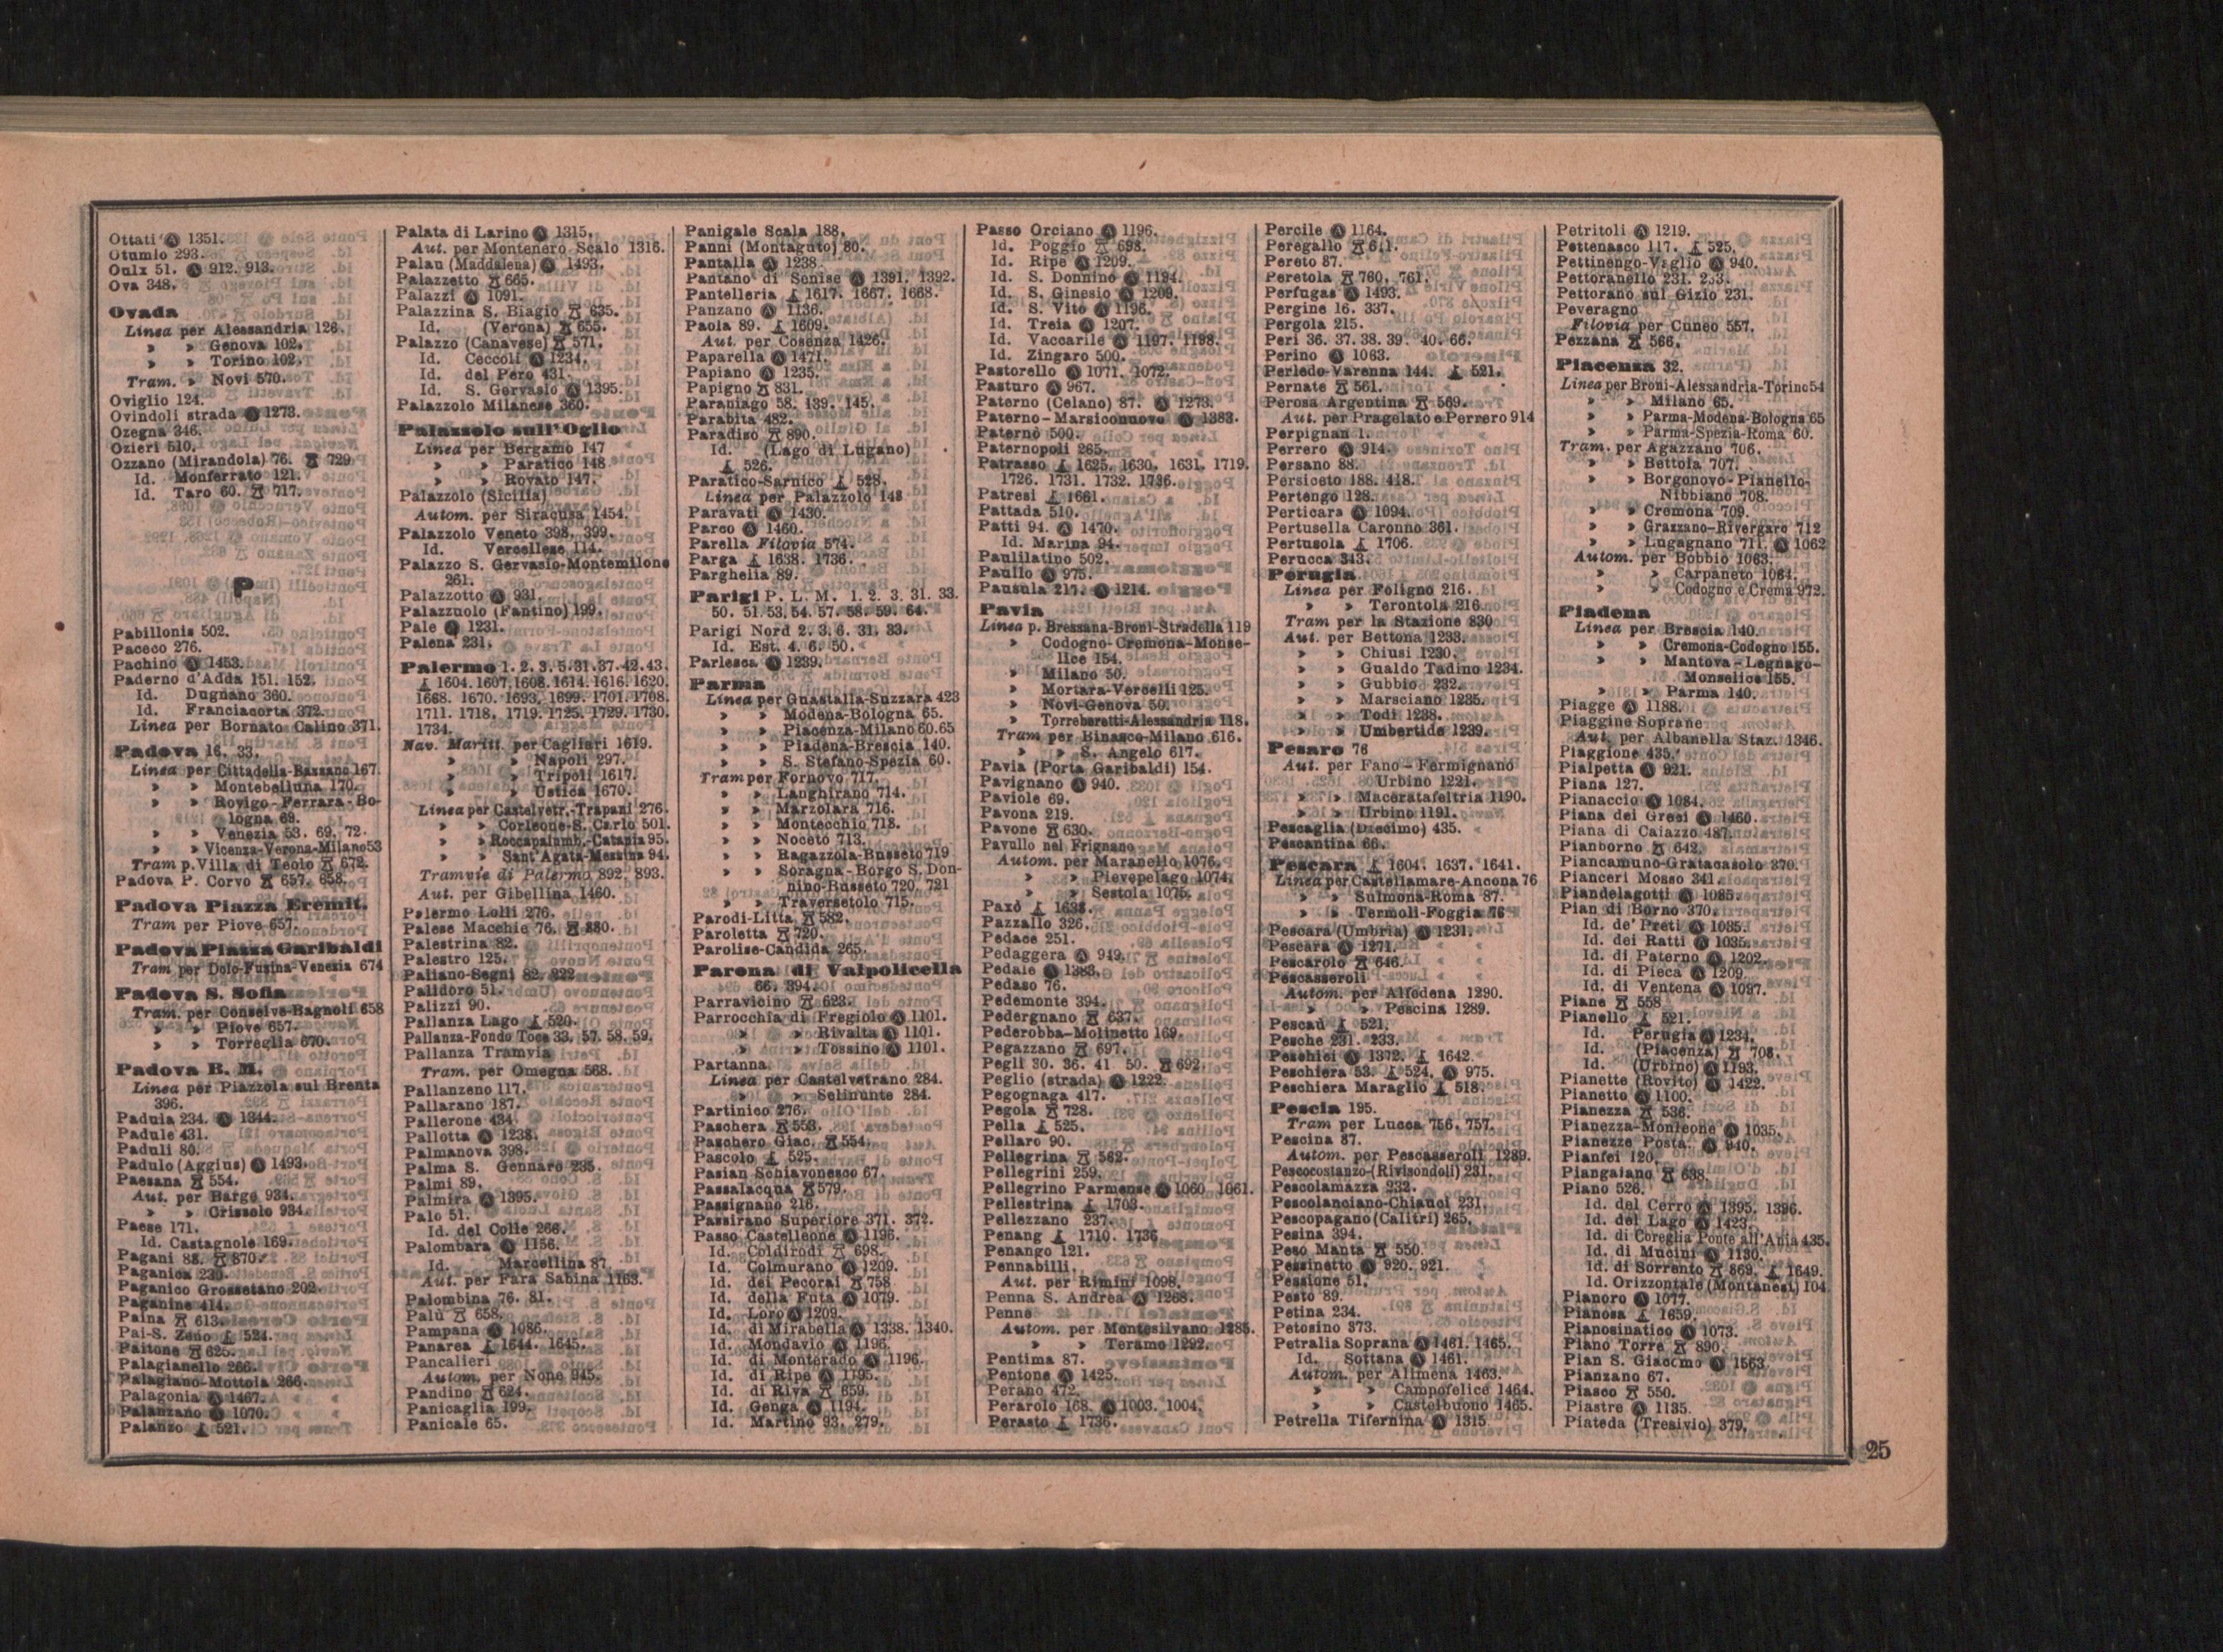 Ottati 1351.
Otumlo 293.
Oulx 51. 912. 913.
Ova 348.
Ovada
Linea per Alessandria 126.
» » Genova 102.
» » Torino 102.
Tram. » Novi 570.
Oviglio 124.
Ovindoli strada 1273.
Ozegna 346.
Ozieri 510.
Ozzano (Mirandola) 76. 729
Id. Monferrato 121.
Id. Taro 60. 717.
P
Pabillonis 502.
Paceco 276.
Pachino 1453.
Paderno d'Adda 151. 152.
Id. Dugnano 360.
Id. Franciacorta 372.
Linea per Bornato Calino 371.
Padova 16. 33.
Linea per Cittadella-Bassano 167.
» » Montebelluna 170.
» » Rovigo-Ferrara-Bo-
logna 69.
» » Venezia 53. 69. 72.
» » Vicenza-Verona-Milano 53
Tram p. Villa di Teolo 672.
Padova P. Corvo 657. 658.
Padova Piazza Eremit.
Tram per Piove 657.
Padova Piazza Garibaldi
Tram per Dolo-Fusina-Venezia 674
Padova S. Sofia
Tram. per Conselve-Bagnoli 658
» » Piove 657.
» » Torreglia 670.
Padova B. M.
Linea per Piazzola sul Brenta
396.
Padula 234. 1344.
Padule 431.
Paduli 80.
Padulo (Aggius) 1493.
Paesana 554.
Aut. per Barge 934.
» » Crissolo 934.
Paese 171.
Id. Castagnole 169.
Pagani 88. 870.
Paganica 230.
Paganico Grossetano 202.
Paganine 414.
Paina 613.
Pai-S. Zeno 524.
Paitone 625.
Palagianello 266.
Palagiano-Mottola 266.
Palagonia 1467.
Palanzano 1070.
Palanzo 521.
Palata di Larino 1315.
Aut. per Montenero Scalo 1316.
Palau (Maddalena) 1493.
Palazzetto 665.
Palazzi 1091.
Palazzina S. Biagio 635.
Id. (Verona) 655.
Palazzo (Canavese) 571.
Id. Ceccoli 1234.
Id. del Pero 431.
Id. S. Gervasio 1395.
Palazzolo Milanese 360.
Palazzolo sull'Oglio
Linea per Bergamo 147
» » Paratico 148
» » Rovato 147.
Palazzolo (Sicilia)
Autom. per Siracusa 1454.
Palazzolo Veneto 398. 399.
Id. Vercellese 114.
Palazzo S. Gervasio-Montemilone
261.
Palazzotto 931.
Palazzuolo (Fantino) 199.
Pale 1231.
Palena 231.
Palermo 1. 2. 3. 5. 31. 37. 42. 43.
1604. 1607. 1608. 1614. 1616. 1620.
1668. 1670. 1693. 1699. 1701. 1708.
1711. 1718. 1719. 1725. 1729. 1730.
1734.
Nav. Maritt. per Cagliari 1619.
» » Napoli 297.
» » Tripoli 1617.
» » Ustica 1670.
Linea per Castelvetr.-Trapani 276.
» » Corleone-S. Carlo 501.
» » Roccapalumb.-Catania 95.
» » Sant'Agata-Messina 94.
Tramvie di Palermo 892. 893.
Aut. per Gibellina 1460.
Palermo Lolli 276.
Palese Macchie 76. 880.
Palestrina 82.
Palestro 125.
Paliano-Segni 82. 222
Palidoro 51.
Palizzi 90.
Pallanza Lago 520.
Pallanza-Fondo Toce 33. 57. 58. 59.
Pallanza Tramvia
Tram. per Omegna 568.
Pallanzeno 117.
Pallarano 187.
Pallerone 434
Pallotta 1238.
Palmanova 398.
Palma S. Gennaro 235.
Palmi 89.
Palmira 1395.
Palo 51.
Id. del Colle 266.
Palombara 1156.
Id. Marcellina 87
Aut. per Fara Sabina 1163.
Palombina 76. 81.
Palù 658.
Pampana 1086.
Panarea 1644. 1645.
Pancalieri
Autom. per None 945.
Pandino 624.
Panicaglia 199.
Panicale 65.
Panigale Scala 188.
Panni (Montaguto) 80.
Pantalla 1238.
Pantano di Senise 1391. 1392.
Pantelleria 1617. 1667. 1668.
Panzano 1136.
Paola 89. 1609.
Aut. per Cosenza 1426.
Paparella 1471.
Papiano 1235.
Papigno 831.
Parabiago 58. 139. 145.
Parabita 482.
Paradiso 890.
Id. (Lago di Lugano)
526.
Paratico-Sarnico 528.
Linea per Palazzolo 148
Paravati 1430.
Parco 1460.
Parella Filovia 574.
Parga 1638. 1736.
Parghelia 89.
Parigi P. L. M. 1. 2. 3. 31. 33.
50. 51. 53. 54. 57. 58. 59. 64.
Parigi Nord 2. 3. 6. 31. 33.
Id. Est. 4. 6. 50.
Parlesca 1239.
Parma
Linea per Guastalla-Suzzara 423
» » Modena-Bologna 65.
» » Piacenza-Milano 60.65
» » Piadena-Brescia 140.
» » S. Stefano-Spezia 60.
Tram per Fornovo 717.
» » Langhirano 714.
» » Marzolara 716.
» » Montecchio 718.
» » Noceto 713.
» » Ragazzola-Busseto 719
» » Soragna-Borgo S. Don-
nino-Busseto 720. 721
» » Traversetolo 715.
Parodi-Litta 582.
Paroletta 720.
Parolise-Candida 265.
Parona di Valpolicella
66. 394.
Parravicino 623.
Parrocchia di Fregiolo 1101.
» » Rivalta 1101.
» » Tossino 1101.
Partanna
Linea per Castelvetrano 284.
» » Selinunte 284.
Partinico 276.
Paschera 553.
Paschero Giac. 554.
Pascolo 525.
Pasian Schiavonesco 67.
Passalacqua 579.
Passignano 216.
Passirano Superiore 371. 372.
Passo Castelleone 1196.
Id. Coldirodi 698.
Id. Colmurano 1209.
Id. dei Pecorai 758
Id. della Futa 1079.
Id. Loro 1209.
Id. di Mirabella 1338. 1340.
Id. Mondavio 1196.
Id. di Monterado 1196.
Id. di Ripe 1195.
Id. di Riva 659.
Id. Genga 1194.
Id. Martino 93. 279.
Passo Orciano 1196.
Id. Poggio 698.
Id. Ripe 1209.
Id. S. Donnino 1194.
Id. S. Ginesio 1209.
Id. S. Vito 1196.
Id. Treia 1207.
Id. Vaccarile 1197. 1198.
Id. Zingaro 500.
Pastorello 1071. 1072.
Pasturo 967.
Paterno (Celano) 87. 1273.
Paterno-Marsiconuovo 1383.
Paternò 500.
Paternopoli 265.
Patrasso 1625. 1630. 1631. 1719.
1726. 1731. 1732. 1736.
Patresi 1661.
Pattada 510.
Patti 94. 1470.
Id. Marina 94.
Paulilatino 502.
Paullo 975.
Pausula 217. 1214.
Pavia
Linea p. Bressana-Broni-Stradella 119
» Codogno-Cremona-Monse-
lice 154.
» Milano 50.
» Mortara-Vercelli 125.
» Novi-Genova 50.
» Torreberetti-Alessandria 118.
Tram per Binasco-Milano 616.
» » S. Angelo 617.
Pavia (Porta Garibaldi) 154.
Pavignano 940.
Paviole 69.
Pavona 219.
Pavone 630.
Pavullo nel Frignano
Autom. per Maranello 1076.
» » Pievepelago 1074.
» » Sestola 1075.
Paxò 1638.
Pazzallo 326.
Pedace 251.
Pedaggera 949.
Pedale 1383.
Pedaso 76.
Pedemonte 394.
Pedergnano 637.
Pederobba-Molinetto 169.
Pegazzano 697.
Pegli 30. 36. 41. 50. 692.
Peglio (strada) 1222.
Pegognaga 417.
Pegola 728.
Pella 525.
Pellaro 90.
Pellegrina 562.
Pellegrini 259.
Pellegrino Parmense 1060. 1061.
Pellestrina 1703.
Pellezzano 237.
Penang 1710. 1736
Penango 121.
Pennabilli.
Aut. per Rimini 1098.
Penna S. Andrea 1268.
Penne
Autom. per Montesilvano 1285.
» » Teramo 1292.
Pentima 87.
Pentone 1425.
Perano 472.
Perarolo 168. 1003. 1004.
Perasto 1736.
Percile 1164.
Peregallo 611.
Pereto 87.
Peretola 760. 761.
Perfugas 1493.
Pergine 16. 337.
Pergola 215.
Peri 36. 37. 38. 39. 40. 66.
Perino 1063.
Perledo-Varenna 144. 521.
Pernate 561.
Perosa Argentina 569.
Aut. per Pragelato e Perrero 914
Perpignan 1.
Perrero 914.
Persano 88.
Persiceto 188. 418.
Pertengo 128.
Perticara 1094.
Pertusella Caronno 361.
Pertusola 1706.
Perucca 343.
Perugia
Linea per Foligno 216.
» » Terontola 216.
Tram per la Stazione 830
Aut. per Bettona 1233.
» » Chiusi 1230.
» » Gualdo Tadino 1234.
» » Gubbio 232.
» » Marsciano 1235.
» » Todi 1238.
» » Umbertide 1239.
Pesaro 76
Aut. per Fano-Fermignano
Urbino 1221.
» » Maceratafeltria 1190.
» » Urbino 1191.
Pescaglia (Diecimo) 435.
Pescantina 66.
Pescara 1604. 1637. 1641.
Linea per Castellamare-Ancona 76
» » Sulmona-Roma 87.
» » Termoli-Foggia 76
Pescara (Umbria) 1231.
Pescara 1271.
Pescarolo 646.
Pescasseroli
Autom. per Alfedena 1290.
» » Pescina 1289.
Pescaù 521.
Pesche 231. 233.
Peschici 1372. 1642.
Peschiera 53. 524. 975.
Peschiera Maraglio 518.
Pescia 195.
Tram per Lucca 756. 757.
Pescina 87.
Autom. per Pescasseroli 1289.
Pescocostanzo-(Rivisondoli) 231.
Pescolamazza 232.
Pescolanciano-Chiauci 231.
Pescopagano (Calitri) 265.
Pesina 394.
Peso Manta 550.
Pessinetto 920. 921.
Pessione 51.
Pesto 89.
Petina 234.
Petosino 373.
Petralia Soprana 1461. 1465.
Id. Sottana 1461.
Autom. per Alimena 1463.
» » Campofelice 1464.
» » Castelbuono 1465.
Petrella Tifernina 1315
Petritoli 1219.
Pettenasco 117. 525.
Pettinengo-Vaglio 940.
Pettoranello 231. 233.
Pettorano sul Gizio 231.
Peveragno
Filovia per Cuneo 557.
Pezzana 566.
Piacenza 32.
Linea per Broni-Alessandria-Torino 54
» » Milano 65.
» » Parma-Modena-Bologna 65
» » Parma-Spezia-Roma 60.
Tram. per Agazzano 706.
» » Bettola 707.
» » Borgonovo-Pianello-
Nibbiano 708.
» » Cremona 709.
» » Grazzano-Rivergaro 712
» » Lugagnano 711. 1062
Autom. per Bobbio 1063.
» » Carpaneto 1064.
» » Codogno e Crema 972.
Piadena
Linea per Brescia 140.
» » Cremona-Codogno 155.
» » Mantova-Legnago-
Monselice 155.
» » Parma 140.
Piagge 1188.
Piaggine Soprane
Aut. per Albanella Staz. 1346.
Piaggione 435.
Pialpetta 921.
Piana 127.
Pianaccio 1084.
Piana dei Greci 1460.
Piana di Caiazzo 487.
Pianborno 642.
Piancamuno-Gratacasolo 370.
Pianceri Mosso 341.
Piandelagotti 1085.
Pian di Borno 370.
Id. de' Preti 1035.
Id. dei Ratti 1035.
Id. di Paterno 1202.
Id. di Pieca 1209.
Id. di Ventena 1097.
Piane 558.
Pianello 521.
Id. Perugia 1234.
Id. (Piacenza) 708.
Id. (Urbino) 1193.
Pianette (Rovito) 1422.
Pianetto 1100.
Pianezza 536.
Pianezza-Monleone 1035.
Pianezze Posta. 940.
Pianfei 120.
Piangaiano 638.
Piano 526.
Id. del Cerro 1395. 1396.
Id. del Lago 1423.
Id. di Coreglia Ponte all'Ania 435.
Id. di Mucini 1130.
Id. di Sorrento 869. 1649.
Id. Orizzontale (Montanesi) 104
Pianoro 1077.
Pianosa 1659.
Pianosinatico 1073.
Piano Torre 890.
Pian S. Giacomo 1563.
Pianzano 67.
Piasco 550.
Piastre 1135.
Piateda (Tresivio) 379.
25